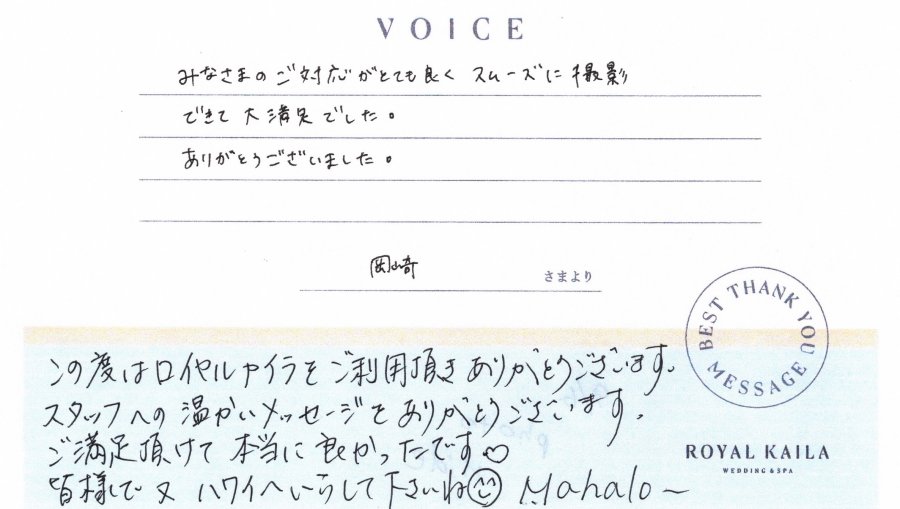 VOICE
みなさまのご対応がとても良く スムーズに撮影
できて 大満足でした。
ありがとうございました。
岡崎 さまより
BEST THANK YOU MESSAGE
この度はロイヤルカイラをご利用頂きありがとうございます。
スタッフへの温かいメッセージをありがとうございます。
ご満足頂けて本当に良かったです♡
ROYAL KAILA
WEDDING & SPA
皆様で又ハワイへいらして下さいね☺ Mahalo~